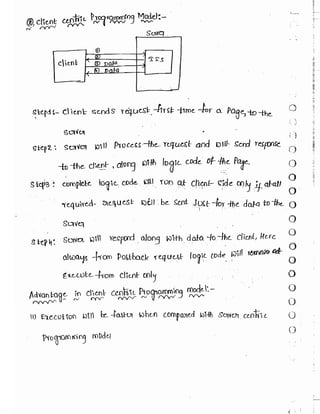 ② client centric Programming Model:-
Server
①
②
client
③ Data
④ Data
I I S
Step1:- client sends request first time for a Page, to the
Server
step2: Server will Process the request and will send response
to the client, along with logic code of the Page.
Step3: complete logic code will run at client side only if at all
required. request will be sent Just for the data to the
Server
step4: Server will respond along with data to the client, Here
always from Postback request logic code will remove at
Execute from client only
Advantage in client centric Programming model:-
(1) Execution will be faster when compared with Server centric
Programming model